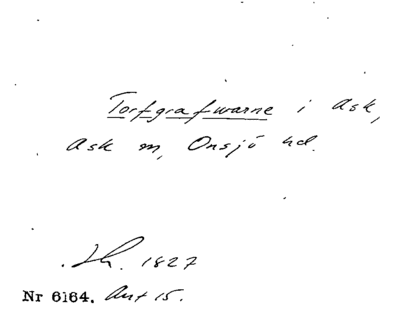 Torfgrafwarne i Ask,
Ask m, Onsjö hd.
Lh. 1827
Nr 6164. Ant 15.